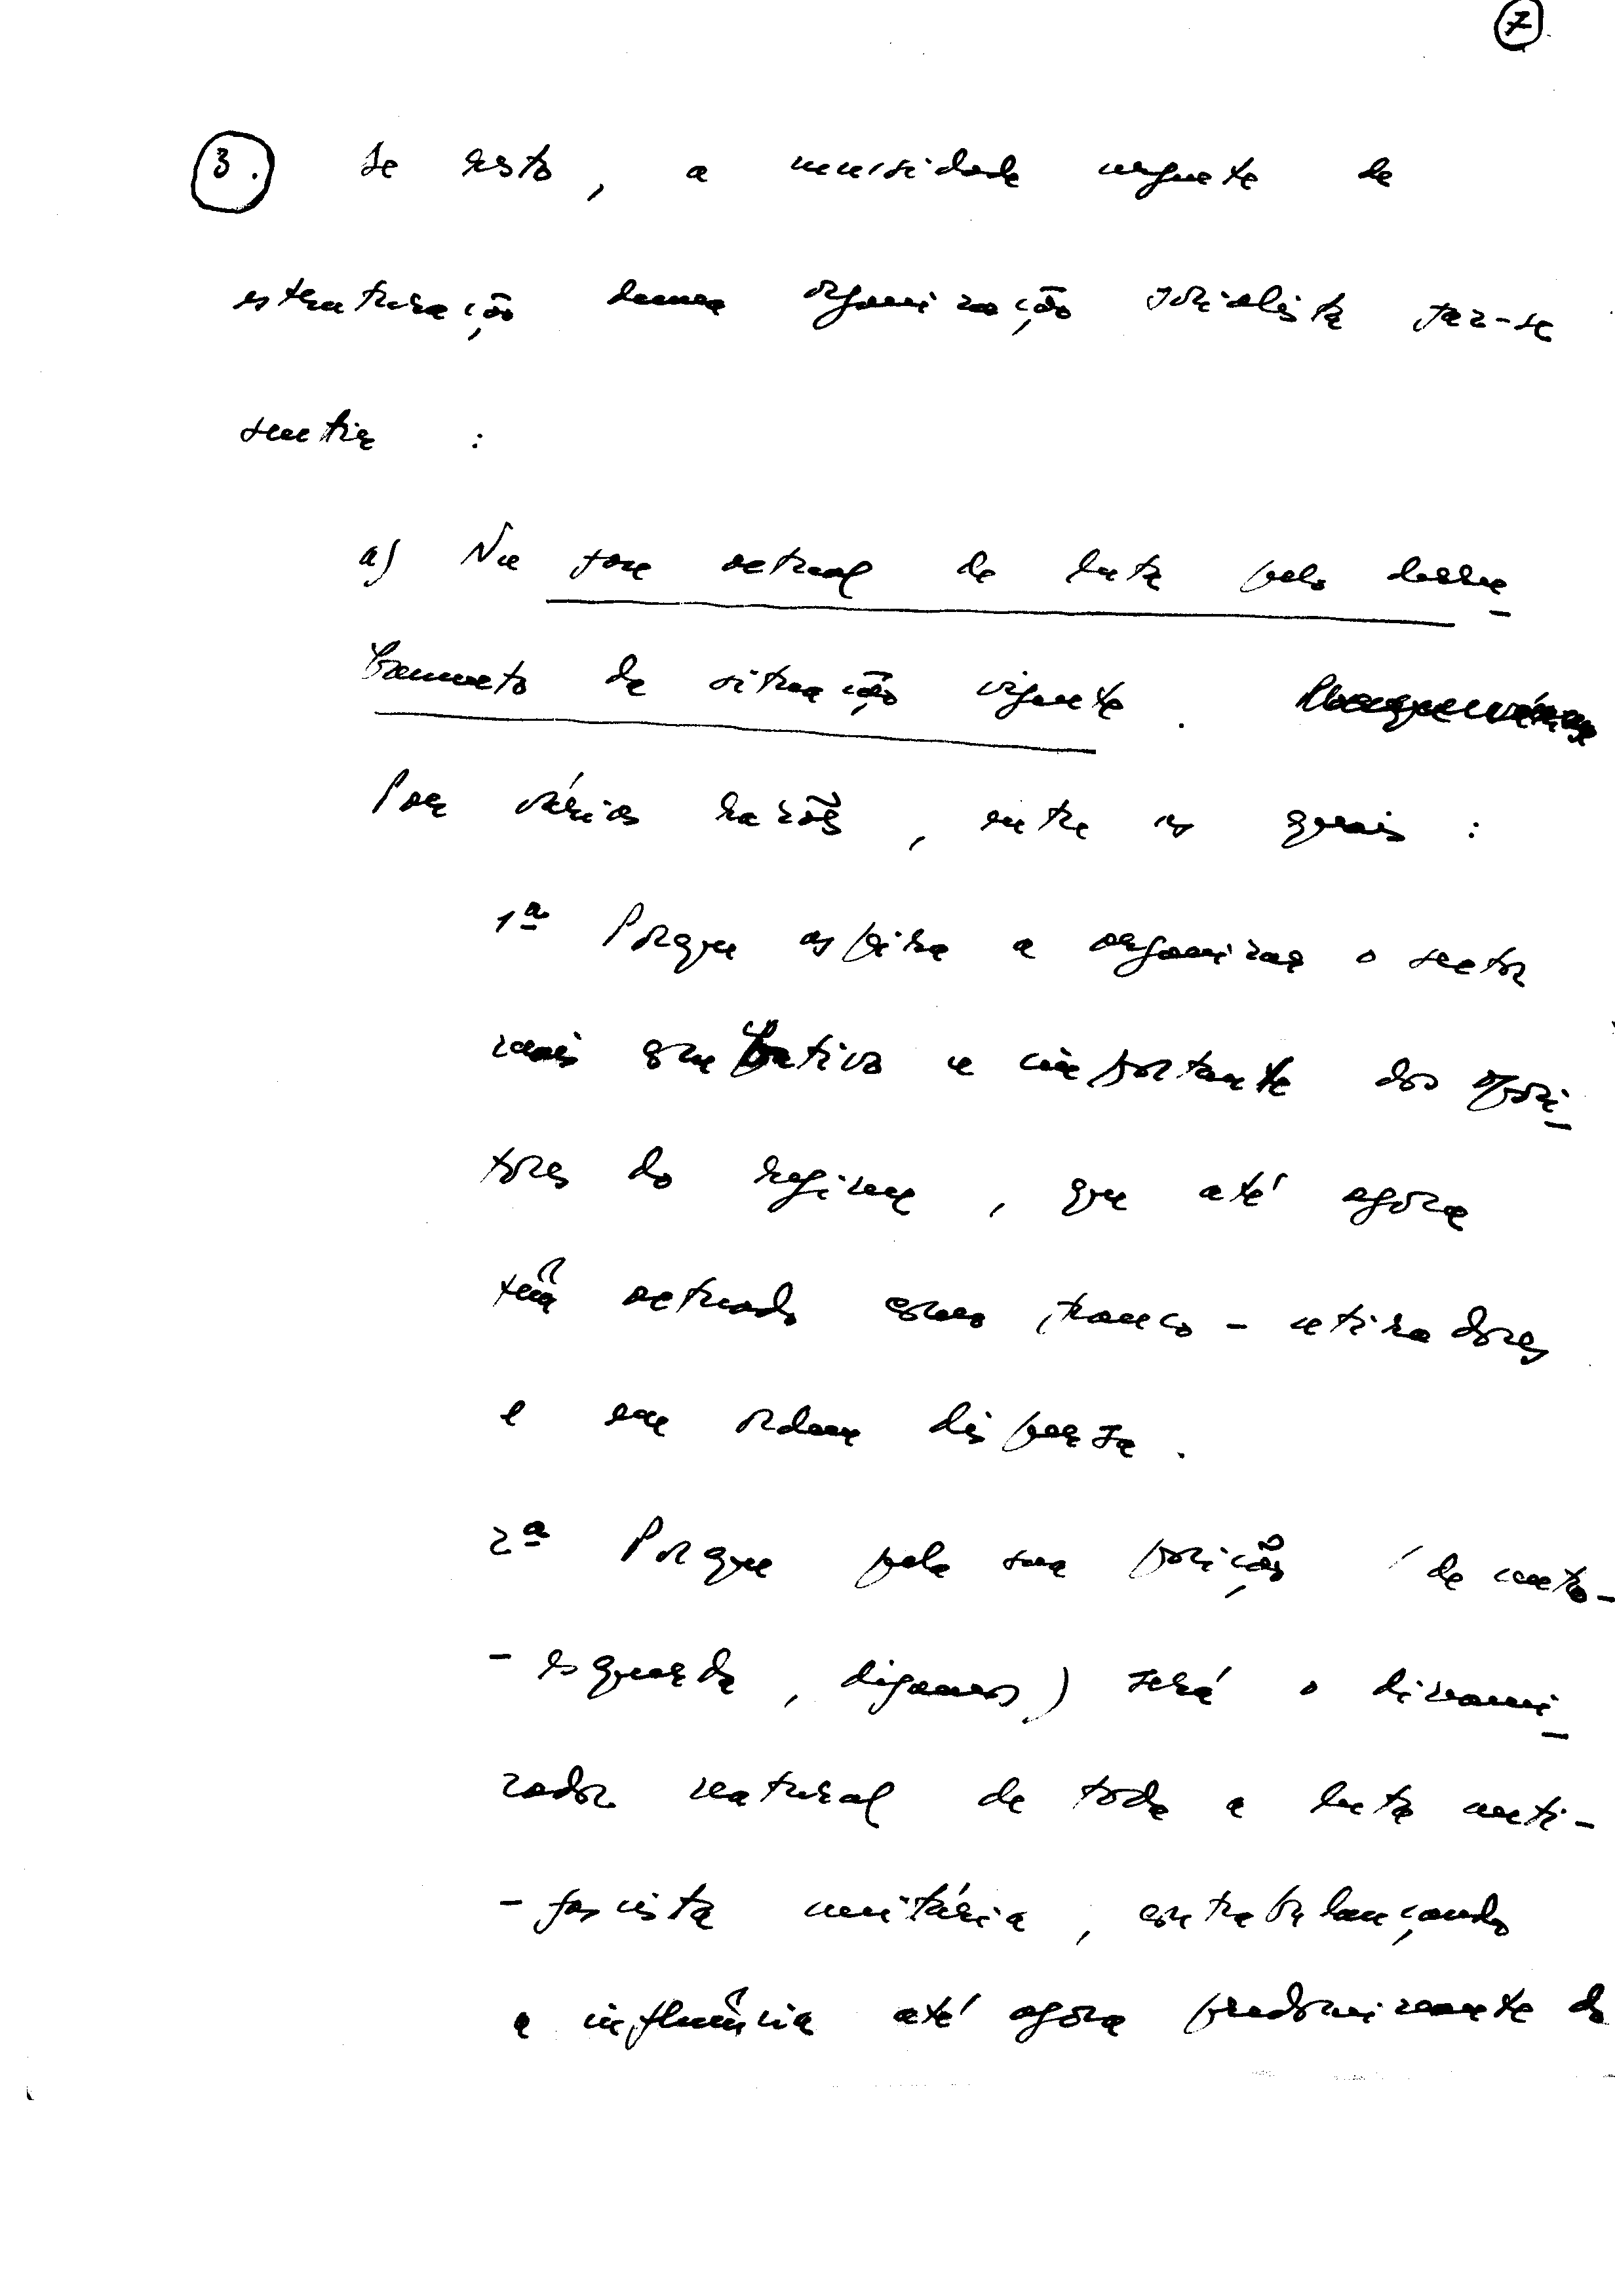 7
3. De resto, a necessidade urgente de
estruturação duma organização socialista faz-se
sentir :
a) Na fase actual de luta pelo derru-
bamento da situação vigente.
Por várias razões, entre as quais :
1ª Porque aspira a organizar o sector
mais combativo e importante dos oposi-
tores do regime, que até agora
têm actuado como franco-atiradores
e em ordem dispersa.
2ª Porque pela sua posição (de centro-
-esquerda, digamos) será o dinami-
zador natural de toda a luta anti-
-fascista unitária, contrabalançando
a influência até agora predominante do